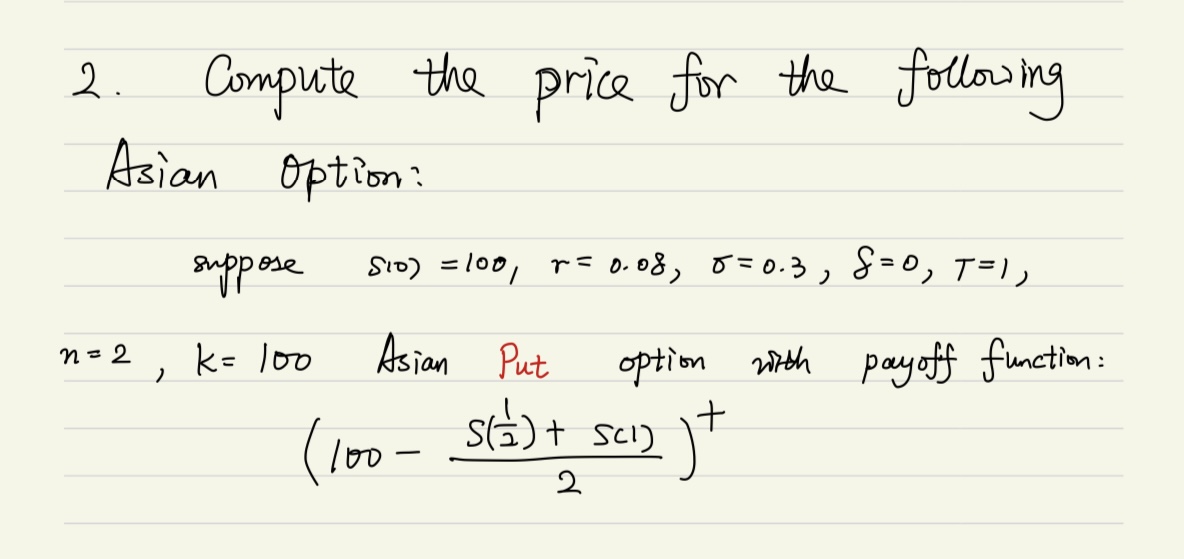 2. Compute the price for the following
Asian Option:
suppose S(0) = 100, r = 0.08, σ = 0.3, δ = 0, T = 1,
n = 2, k = 100 Asian Put option with payoff function:
(100 - (S(1/2) + S(1))/2)^+